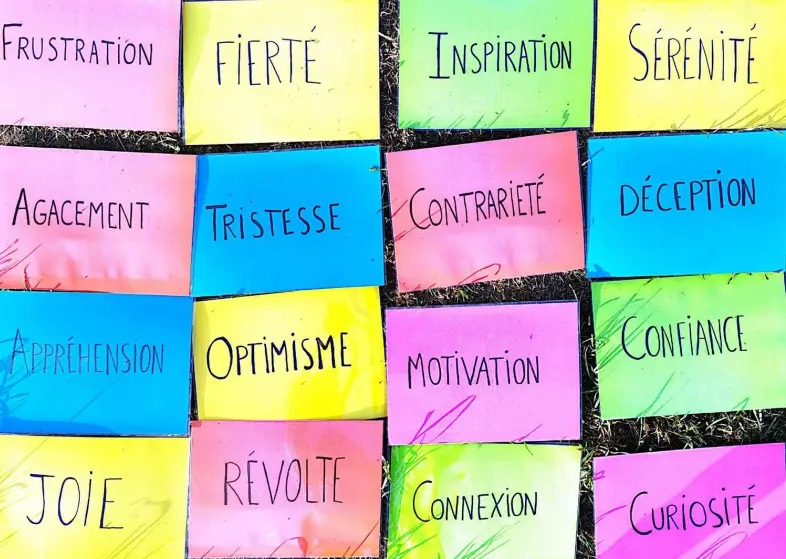 FRUSTRATION
FIERTÉ
INSPIRATION
SÉRÉNITÉ
AGACEMENT
TRISTESSE
CONTRARIETÉ
DÉCEPTION
APPRÉHENSION
OPTIMISME
MOTIVATION
CONFIANCE
JOIE
RÉVOLTE
CONNEXION
CURIOSITÉ